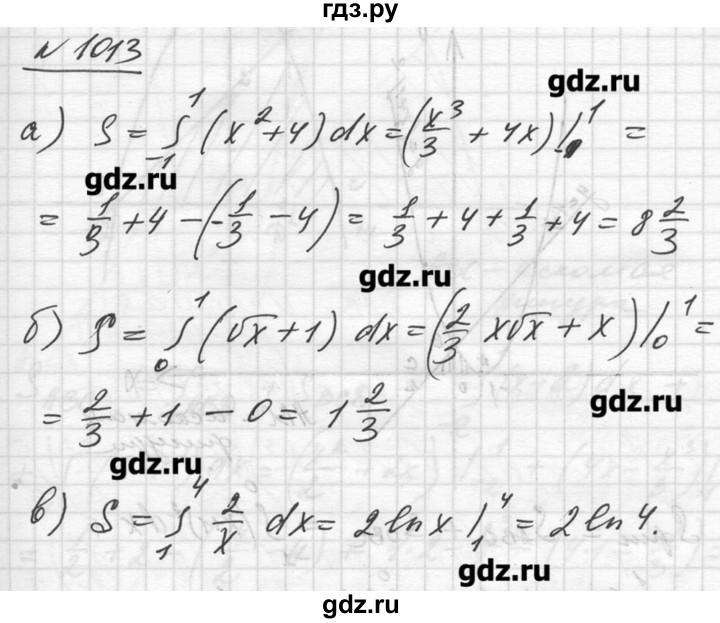 гдз.ру
N 1013
gdz.ru
а) S = ∫₋₁¹ (x² + 4) dx = (x³/3 + 4x) |₋₁¹ =
gdz.ru
= 1/3 + 4 − (−1/3 − 4) = 1/3 + 4 + 1/3 + 4 = 8 2/3
gdz.ru
б) S = ∫₀¹ (√x + 1) dx = (2/3 x√x + x) |₀¹ =
= 2/3 + 1 − 0 = 1 2/3
gdz.ru
gdz.ru
в) S = ∫₁⁴ 2/x dx = 2 ln x |₁⁴ = 2 ln 4.
gdz.ru
gdz.ru